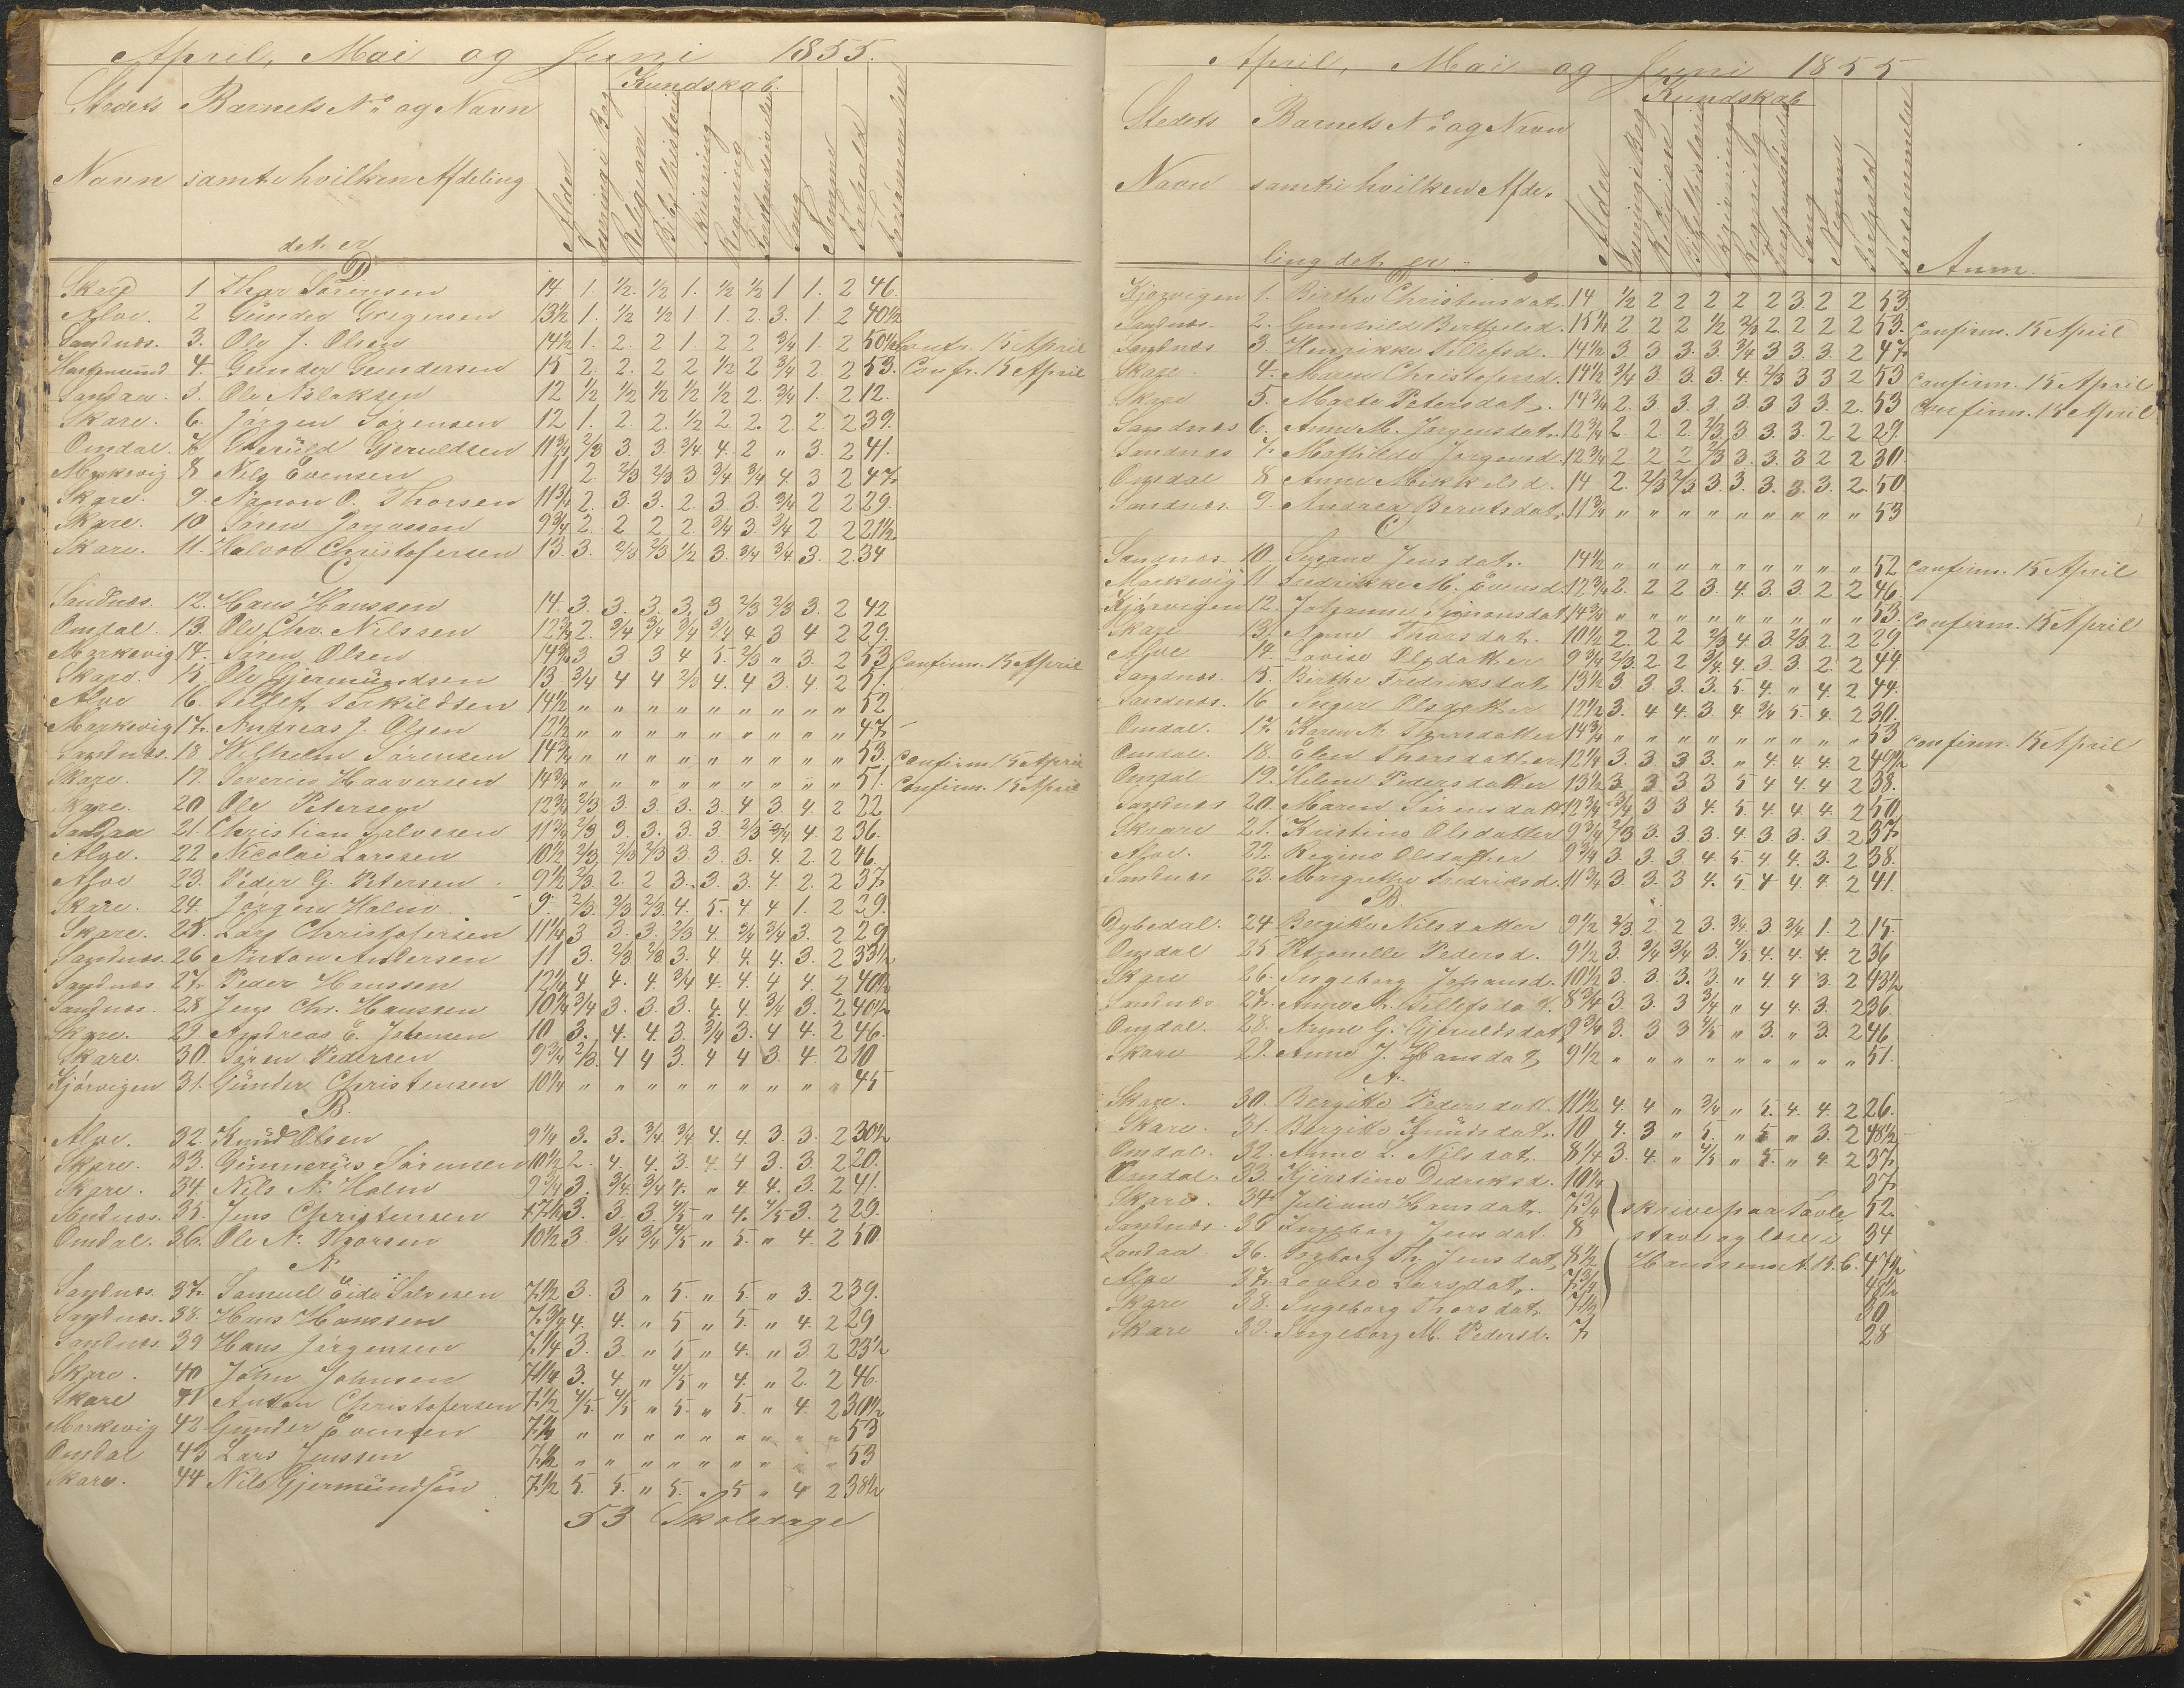 April, Mai og Juni 1855.
Kundskab.
Stedets Barnets No. og Navn
Navn samt i hvilken Afdeling
det er
Alder Læsning i Bog Religion Bibelhistorie Skrivning Regning Sang Nemme Forhold Forsømmelse
D.
Skare 1 Thor Sørensen 14 1. 1/2. 1/2 1. 1/2 1/2 1 1. 2 46.
Alve. 2 Gunder Gregersen 13 1/2 1. 1/2 1/2 1. 1. 2. 3. 1. 2 40 1/2
Sandnæs. 3. Ole J. Olsen 14 1/2 1. 2. 2 1. 2 2 3/4 1. 2 50 1/2 Confr. 15 April
4. Gunder Gundersen 15 2. 2. 2 2 1/2 2 3/4 2. 2 53. Confr. 15 April
5. Ole Aslaksen 12 1/2 1/2 1/2 1/2 1/2 2. 3/4 1. 2 12.
Skare. 6. Jørgen Sørensen 12 1. 2. 2. 1/2 2 2. 2. 2. 2 39.
Omdal. 7. Gjeruld Gjeruldsen 11 3/4 2/3 3. 3. 3/4 4. 2 " 3. 2 41.
Markevig 8 Nils Evensen 11 2. 2/3 2/3 3 3/4 3/4 4. 3 2 47.
Skare. 9. O. Thorsen 11 3/4 2. 3. 3. 2. 3 3. 3/4 2 2 29.
Skare. 10 Søren 9 3/4 2. 2 2 2. 3/4 3 3/4 2 2 21 1/2
Skare. 11. Halvor Christofersen 13. 3. 2/3 2/3 1/2 3. 3/4 3/4. 3. 2. 34
C
Sandnæs. 12. Hans Hanssen 14. 3. 3. 3. 3. 3 2/3 2/3 3. 2 42
Omdal. 13. Ole Chr. Nilssen 12 3/4 2. 3/4 3/4 3/4 3/4 4. 3 4 2 29.
Markevig 14. Søren Olsen 14 3/4 3 3. 3 4 5. 2/3 " 3. 2 53 Confirm. 15 April
Skare. 15. Ole Gjermundsen 13 3/4 4 4 2/3 4. 4 3. 4. 2 51.
Alve 16. Tellef Terkildsen 14 1/2 " " " " " " " " " 52
Markevig 17. Andreas J. Olsen 12 1/2 " " " " " " " " " 47
Sandnæs. 18 Wilhelm Sørensen 14 3/4 " " " " " " " " " 53. Confirm 15 April
Skare. 19 Severin Haaversen 14 3/4 " " " " " " " " " 51. Confirm. 15 April
Skare. 20 Ole Petersen 12 3/4 2/3 3. 3. 3. 3. 4 3 4 2 22
21. Christian Salvesen 11 3/4 2/3 3. 3. 3. 3. 2/3 3/4 4. 2 36.
Alve. 22 Nicolai Larssen 10 1/2 2/3. 2/3 2/3 3. 3. 3. 4. 2. 2 46.
Alve 23. Peder G. Petersen 9 1/2 2/3. 2. 2 3. 3. 3. 4. 2. 2 37.
Skare. 24. Jørgen Holm 9. 2/3. 2/3 2/3. 4. 5. 4. 4 1. 2 29.
Skare. 25. Lars Christofersen 11 1/4 3 3. 3. 2/3 4. 3/4 3/4 3. 2 29.
Sandnæs. 26 Anton Andersen 11 3. 2/3 2/3 3. 4. 4. 4. 3. 2 33 1/2
Sandnæs 27. Peder Hanssen 12 1/4 4 4. 4. 3/4 4. 4. 4 4. 2 40 1/2
Sandnæs. 28 Jens Chr. Hanssen 10 1/4 3/4 3. 3. 3. 4. 4 3/4 3. 2 40 1/2
Skare. 29 Andreas E. Johnsen 10 3. 4. 4. 3. 3/4 3. 4 4. 2 46.
Skare. 30. Søren Pedersen 9 3/4 2/3. 4 4 3. 4 4 3. 4. 2 10
Kjørvigen 31. Gunder Christensen 10 1/4 " " " " " " " " " 45
B.
Alve. 32. Knud Olsen 9 1/4 3. 3. 3/4 3/4 4. 4. 3. 3. 2 30 1/2
Skare. 33. Gunnerius Sørensen 10 1/2 2. 4. 4. 3. 4. 4 3. 3. 2 20.
Skare. 34. Nils N. Holm 9 3/4 3. 3/4. 3/4 4. " 4. 4. 3. 2 41.
Sandnæs. 35. Jens Christensen 7 1/2 3. 3. 3. 4/5 " 4. 4/5 3. 2 29.
Omdal. 36. Ole N. Thorsen 10 1/2 3. 3/4 3/4 4/5 " 5. " 4. 2 50
A.
Sandnæs. 37. Samuel Eide Salvesen 7 1/2 3. 3 " 5. " 5. " 3. 2 39.
Sandnæs. 38. Hans Hanssen 7 3/4 4. 4. " 5 " 5. " 4. 2 29
Sandnæs. 39 Hans Jørgensen 7 1/4 3. 3. " 5 " 4. " 3. 2 23 1/2
Skare. 40 John Johnsen 7 1/4 3. 4. " 4/5 " 4. " 2. 2 46.
Skare 41 Anton Christofersen 7 1/2 4/5. 4/5 " 5. " 5. " 4. 2 30 1/2
Markevig 42 Gunder Evensen 7 1/4 " " " " " " " " " 53
Omdal 43 Lars Jenssen 7 1/2 " " " " " " " " " 53
Skare. 44 Nils Gjermundsøn 7 1/2 5. 5. " 5. " 5 " 4 2 38 1/2
53 Skoledage
April, Mai og Juni 1855
Kundskab
Stedets Barnets No. og Navn
Navn samt i hvilken Afde-
ling det er
Alder Læsning i Bog Religion Bibelhistorie Skrivning Regning Sang Nemme Forhold Forsømmelse Anm.
D.
Kjørvigen 1. Birthe Christensdat. 14 1/2 2 2 2 2 2 3 2 2 53.
Sandnæs. 2. Gunhild Berthelsd. 15 1/4 2 2 2 1/2 2/3 2. 2 2 2 53. Confirm. 15 April
Sandnæs 3. Henrikke Tellefsd. 14 1/2 3 3 3. 3. 3/4 3 3. 3. 2 47.
Skare. 4. Maren Christofersd. 14 1/2 3/4 3. 3. 3. 4. 2/3 3 3 2 53 Confirm. 15 April
Skare 5. Marte Petersdat. 14 3/4 2. 3. 3. 3. 3. 3 3 3. 2. 53 Confirm. 15 April
Sandnæs 6. Anne M. Jørgensdat. 12 3/4 2. 2. 2. 2/3 3 3. 3. 2 2 29.
Sandnæs 7. Mathilde Jørgensd. 12 3/4 2 2 2 2/3 3. 3. 3 2 2 30
Omdal 8 Anne Mikkelsd. 14 2. 2/3 2/3 3. 3. 3. 3. 3. 2. 50
Sandnæs. 9. Andrea Berntsdat. 11 3/4 " " " " " " " " " 53
C
Sandnæs. 10. Susanne Jensdat. 14 1/2 " " " " " " " " " 52 Confirm. 15 April
Markevig 11 Fredrikke M. Evensd. 12 3/4 2. 2 2 3. 4. 3. 3. 2 2 46.
Kjørvigen 12. Johanne Simonsdat. 14 3/4 " " " " " " " " " 53. Confirm. 15 April
Skare 13. Anne Thorsdat. 10 1/2 2. 2 2 2/3 4 3 2/3 2. 2 29
Alve 14. Lovise Olsdatter 9 3/4 2/3 2. 2 3/4. 4. 3. 3. 2. 2 44.
Sandnæs. 15. Birthe Fredriksdat. 13 1/2 3 3. 3. 3. 5. 4. " 4. 2 44.
Sandnæs. 16 Inger Olsdatter 12 1/2 3. 4 4. 3. 4 3/4 5. 4. 2 30.
Omdal. 17. Karen A. Thorsdatter 14 3/4 " " " " " " " " " 53 Confirm. 15 April
Omdal. 18. Elen Thorsdatter 12 1/4 3. 3. 3 3. " 4. 4. 4. 2 49 1/2
Omdal 19. Helene Pedersdatter 13 1/2 3. 3 3 3 5 4 4. 4 2 38.
Sandnæs 20. Maren Sørensdatt. 12 3/4 3/4 3 3 4. 5. 4 4. 4. 2 50
Skare 21. Kristine Olsdatter 9 3/4 2/3 3. 3. 3. 4. 3. 3. 3. 2 37.
Alve. 22. Regine Olsdatter 9 3/4 3. 3. 3. 4. 5. 4 4. 3. 2 38.
Sandnæs 23. Margrethe Fredriksd. 11 3/4 3 3. 3 4. 5. 4 4. 4. 2 41.
B.
Dybedal. 24 Bergitte Nilsdatter 9 1/2 2/3 2. 2 3. 3/4. 3. 3/4 1. 2. 15.
Omdal 25 Petronelle Pedersd. 9 1/2 3. 3/4 3/4 3. 4/5 4. 4. 4. 2 36
Skare 26. Ingeborg Johansd. 10 1/2 3. 3. 3. 3. " 4. 4 3. 2 43 1/2
Sandnæs 27. Anne M. Tellefsdatt. 8 3/4 3. 3. 3 3/4 " 4 4. 3. 2 36.
Omdal. 28. Anne G. Gjeruldsdat. 9 3/4 3. 3 3 4/5 " 3. " 3. 2 46
Skare 29. Anne J. Hansdat. 9 1/2 " " " " " " " " " 51.
A.
Skare. 30. Bergitte Pedersdatt. 11 1/2 4. 4 " 3/4 " 5. 4. 4. 2 26.
Skare. 31. Bergitte Knudsdat. 10 4. 3 " 5. " 5 " 3. 2 48 1/2
Omdal. 32. Anne L. Nilsdat. 8 1/4 3. 4. " 4/5 " 5. " 4. 2 37.
Omdal. 33 Kjerstine Dedriksd. 10 1/4 37.
Skare. 34 Juliane Hansdat. 7 3/4 skrive paa Tavle 52.
Sandnæs. 35 Ingeborg Jensdat. 8 stave og læse i 34
36. Jensdat. 8 1/2 Hanssens A.B.C. 47 1/2
Alve 37. Lovise Larsdat. 7 3/4 48 1/2
Skare 38. Ingeborg Thorsdat. 7 1/2 30
Skare 39. Ingeborg M. Pedersd. 7 28